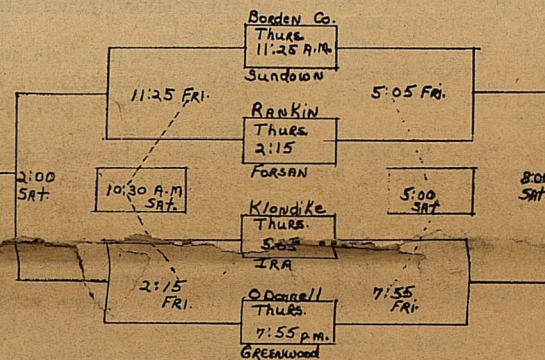 Borden Co.
Thurs.
11:25 A.M.
Sundown
11:25 Fri.
5:05 Fri.
Rankin
Thurs.
2:15
Forsan
2:00
Sat.
10:30 A.M
Sat.
5:00
Sat
8:00
Sat
Klondike
Thurs.
5:05
Ira
2:15
Fri.
7:55
Fri.
O'Donnell
Thurs.
7:55 p.m.
Greenwood